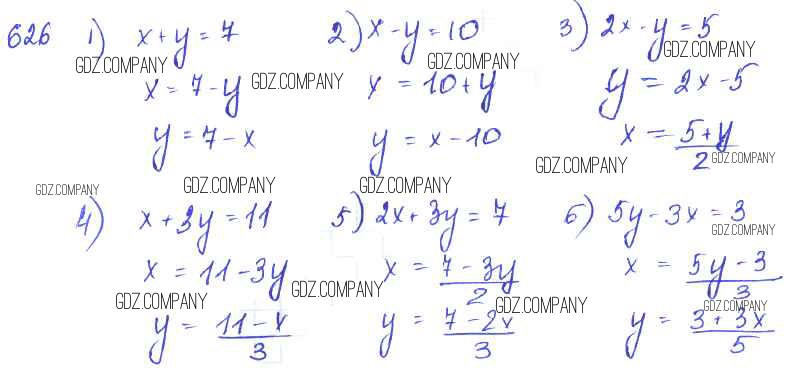 626 1) x+y=7 2) x-y=10 3) 2x-y=5
GDZ.COMPANY GDZ.COMPANY GDZ.COMPANY
x=7-y GDZ.COMPANY x=10+y y=2x-5
y=7-x y=x-10 x=(5+y)/2
GDZ.COMPANY GDZ.COMPANY
GDZ.COMPANY GDZ.COMPANY GDZ.COMPANY
4) x+3y=11 5) 2x+3y=7 6) 5y-3x=3
GDZ.COMPANY
x=11-3y x=(7-3y)/2 x=(5y-3)/3
GDZ.COMPANY GDZ.COMPANY GDZ.COMPANY GDZ.COMPANY
y=(11-x)/3 y=(7-2x)/3 y=(3+3x)/5